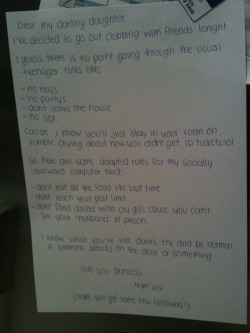 Dear my darling daughter,
I've decided to go out clubbing with friends tonight.
I guess there is no point going through the usual
teenager rules like;
- no boys
- no partys
- dont leave the house
- no sex.
Cause I know you'll just stay in your room on
tumblr crying about how you didnt get 1D tickets lol
So here are some adapted rules for my socially
awkward computer nerd:
- dont eat all the food like last time
- dont reach your post limit
- dont flood dashes with cry gifs cause you cant
see your 'husband' in person.
I know what you're like danni, try and be normal
if someone knocks on the door or something
love you princess
Mum xxx
(hope you get some new followers!)